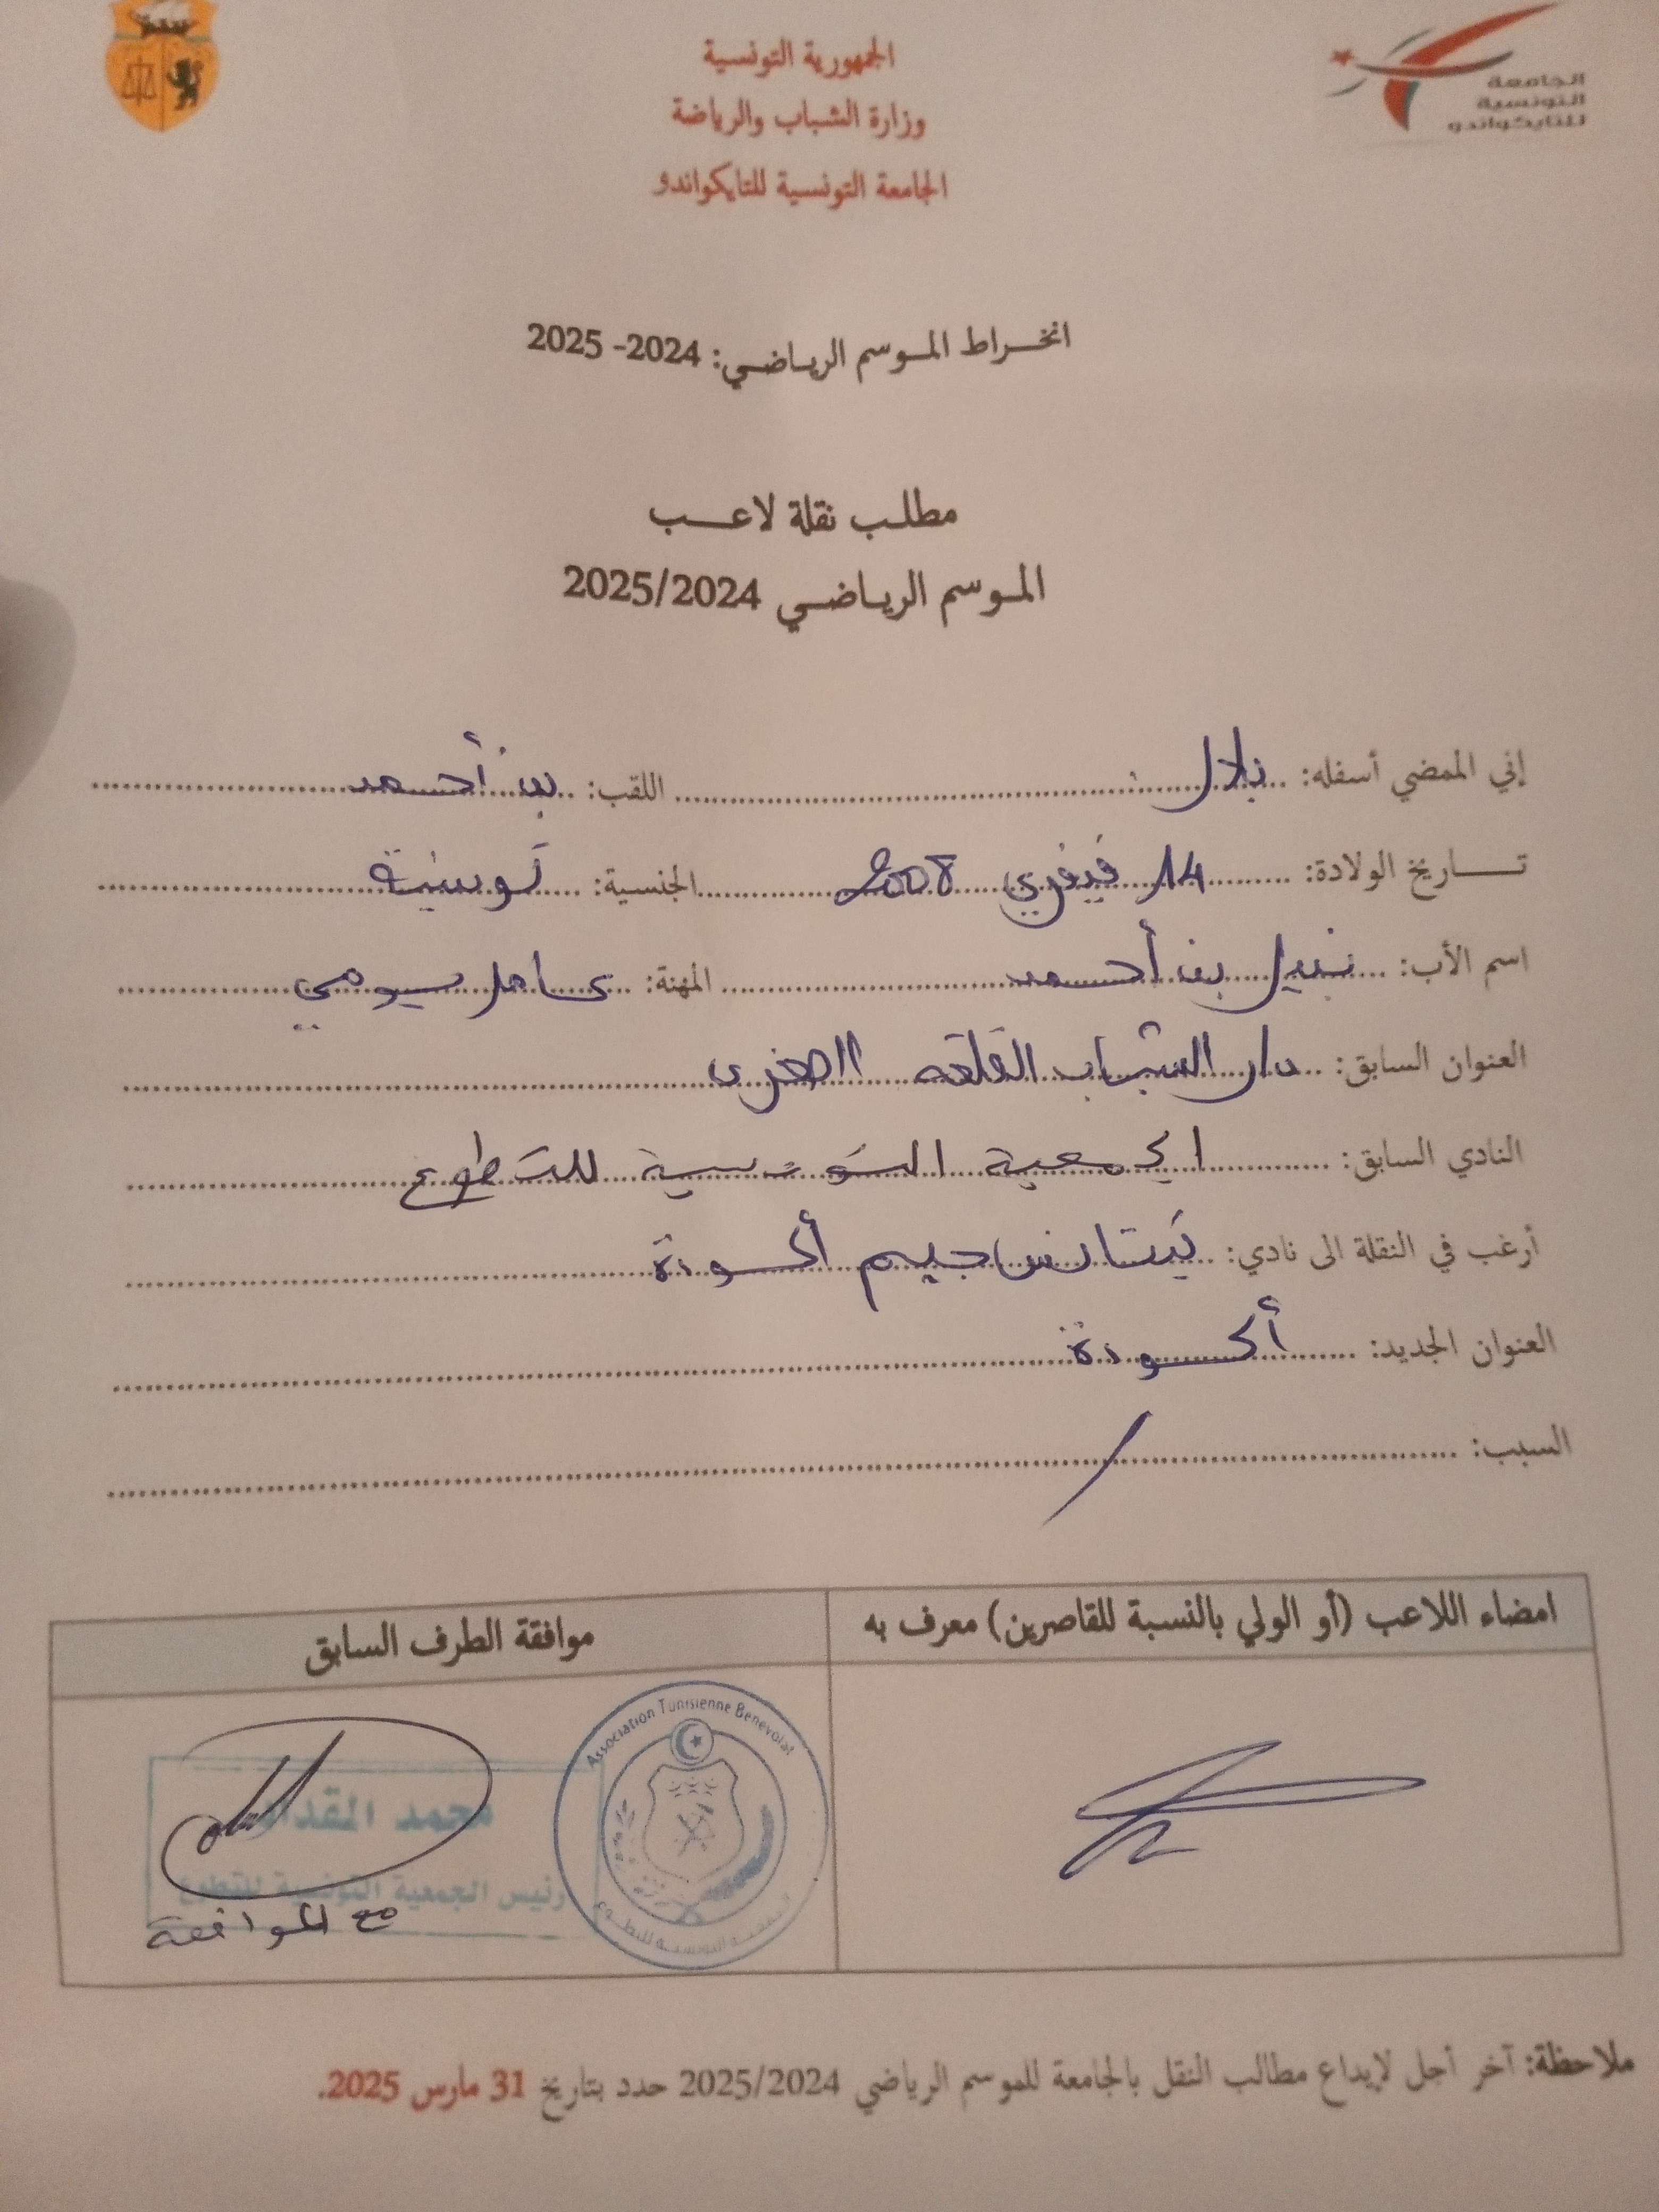 الجامعة
التونسية
للتايكواندو
الجمهورية التونسية
وزارة الشباب والرياضة
الجامعة التونسية للتايكواندو
انخراط الموسم الرياضي: 2024- 2025
مطلب نقلة لاعب
الموسم الرياضي 2025/2024
إني الممضي أسفله: بلال اللقب: بن أحمد
تاريخ الولادة: 14 فيفري 2008 الجنسية: تونسية
اسم الأب: نبيل بن أحمد المهنة: عامل يومي
العنوان السابق: دار الشباب القلعة الصغرى
النادي السابق: الجمعية التونسية للتطوع
أرغب في النقلة الى نادي: جيم أكودة
العنوان الجديد: أكودة
السبب: /
امضاء اللاعب (أو الولي بالنسبة للقاصرين) معرف به
موافقة الطرف السابق
Association Tunisienne Benevolat
الجمعية التونسية للتطوع
محمد
رئيس الجمعية التونسية للتطوع
مع الموافقة
ملاحظة: آخر أجل لإيداع مطالب النقل بالجامعة للموسم الرياضي 2025/2024 حدد بتاريخ 31 مارس 2025.